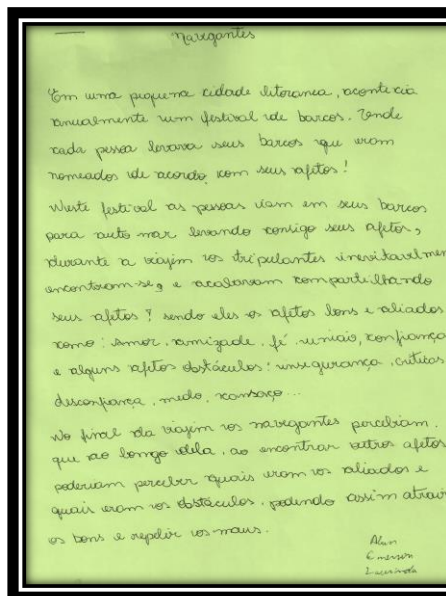 Navegantes
Em uma pequena cidade litoranea, acontecia
anualmente um festival de barcos. Onde
cada pessoa levava seus barcos que eram
nomeados de acordo com seus afetos!
Neste festival as pessoas iam em seus barcos
para auto mar levando consigo seus afetos,
durante a viajem os tripulantes inevitavelmen
encontravam-se, e acabavam compartilhando
seus afetos? sendo eles os afetos bons e aliados
como: Amor, amizade, fé, união, confiança
e alguns afetos obstáculos: insegurança, críticas
desconfiança, medo, cansaço...
No final da viajem os navegantes percebiam,
que ao longo dela, ao encontrar outros afetos
poderiam perceber quais eram os aliados e
quais eram os obstáculos, podendo assim atrair
os bons e repelir os maus.
Alan
Emerson